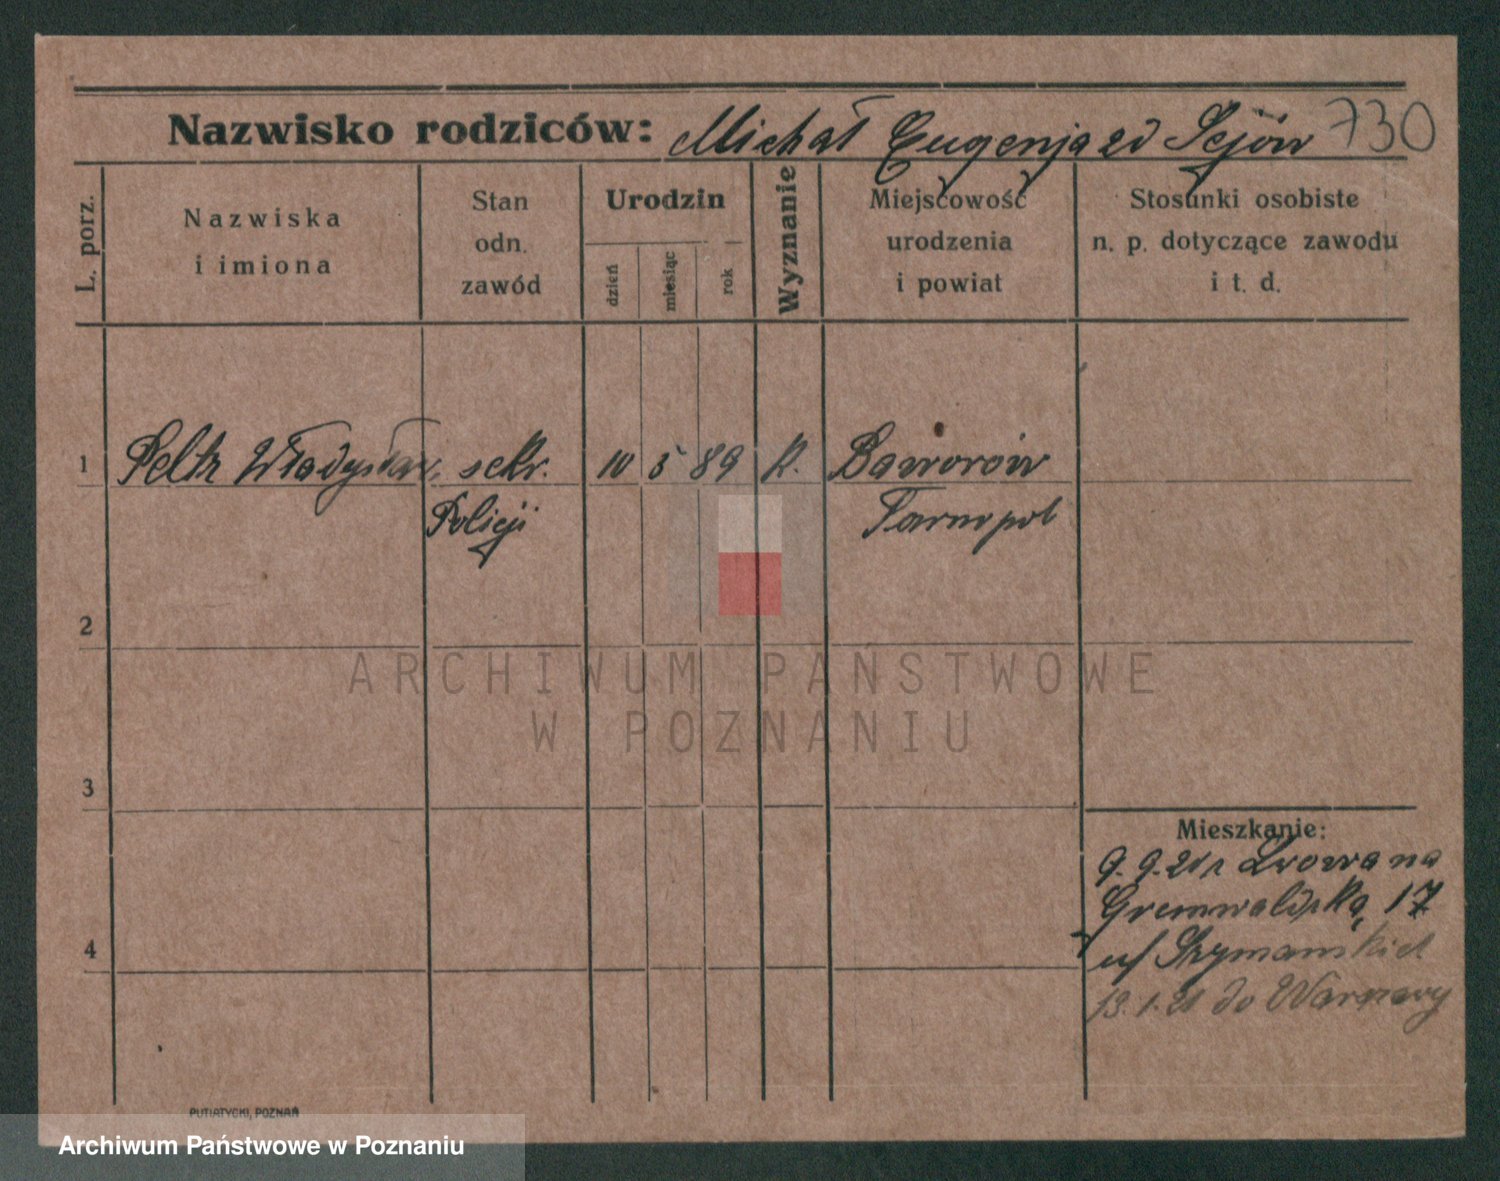 Nazwisko rodziców: Michał Eugenja zd Sejów 730
L. porz.
Nazwiska
i imiona
Stan
odn.
zawód
Urodzin
dzień
miesiąc
rok
Wyznanie
Miejscowość
urodzenia
i powiat
Stosunki osobiste
n. p. dotyczące zawodu
i t. d.
1 Peltz Władysław, sekr. 10 5 89 K. Baworów
Policji Tarnopol
2
3
4
Mieszkanie:
9.9.21 Lwowa na
Grunwaldzką 17
u/ Szymańskich
13.1.21 do Warszawy
PUTIATYCKI, POZNAŃ
ARCHIWUM PAŃSTWOWE
W POZNANIU
Archiwum Państwowe w Poznaniu